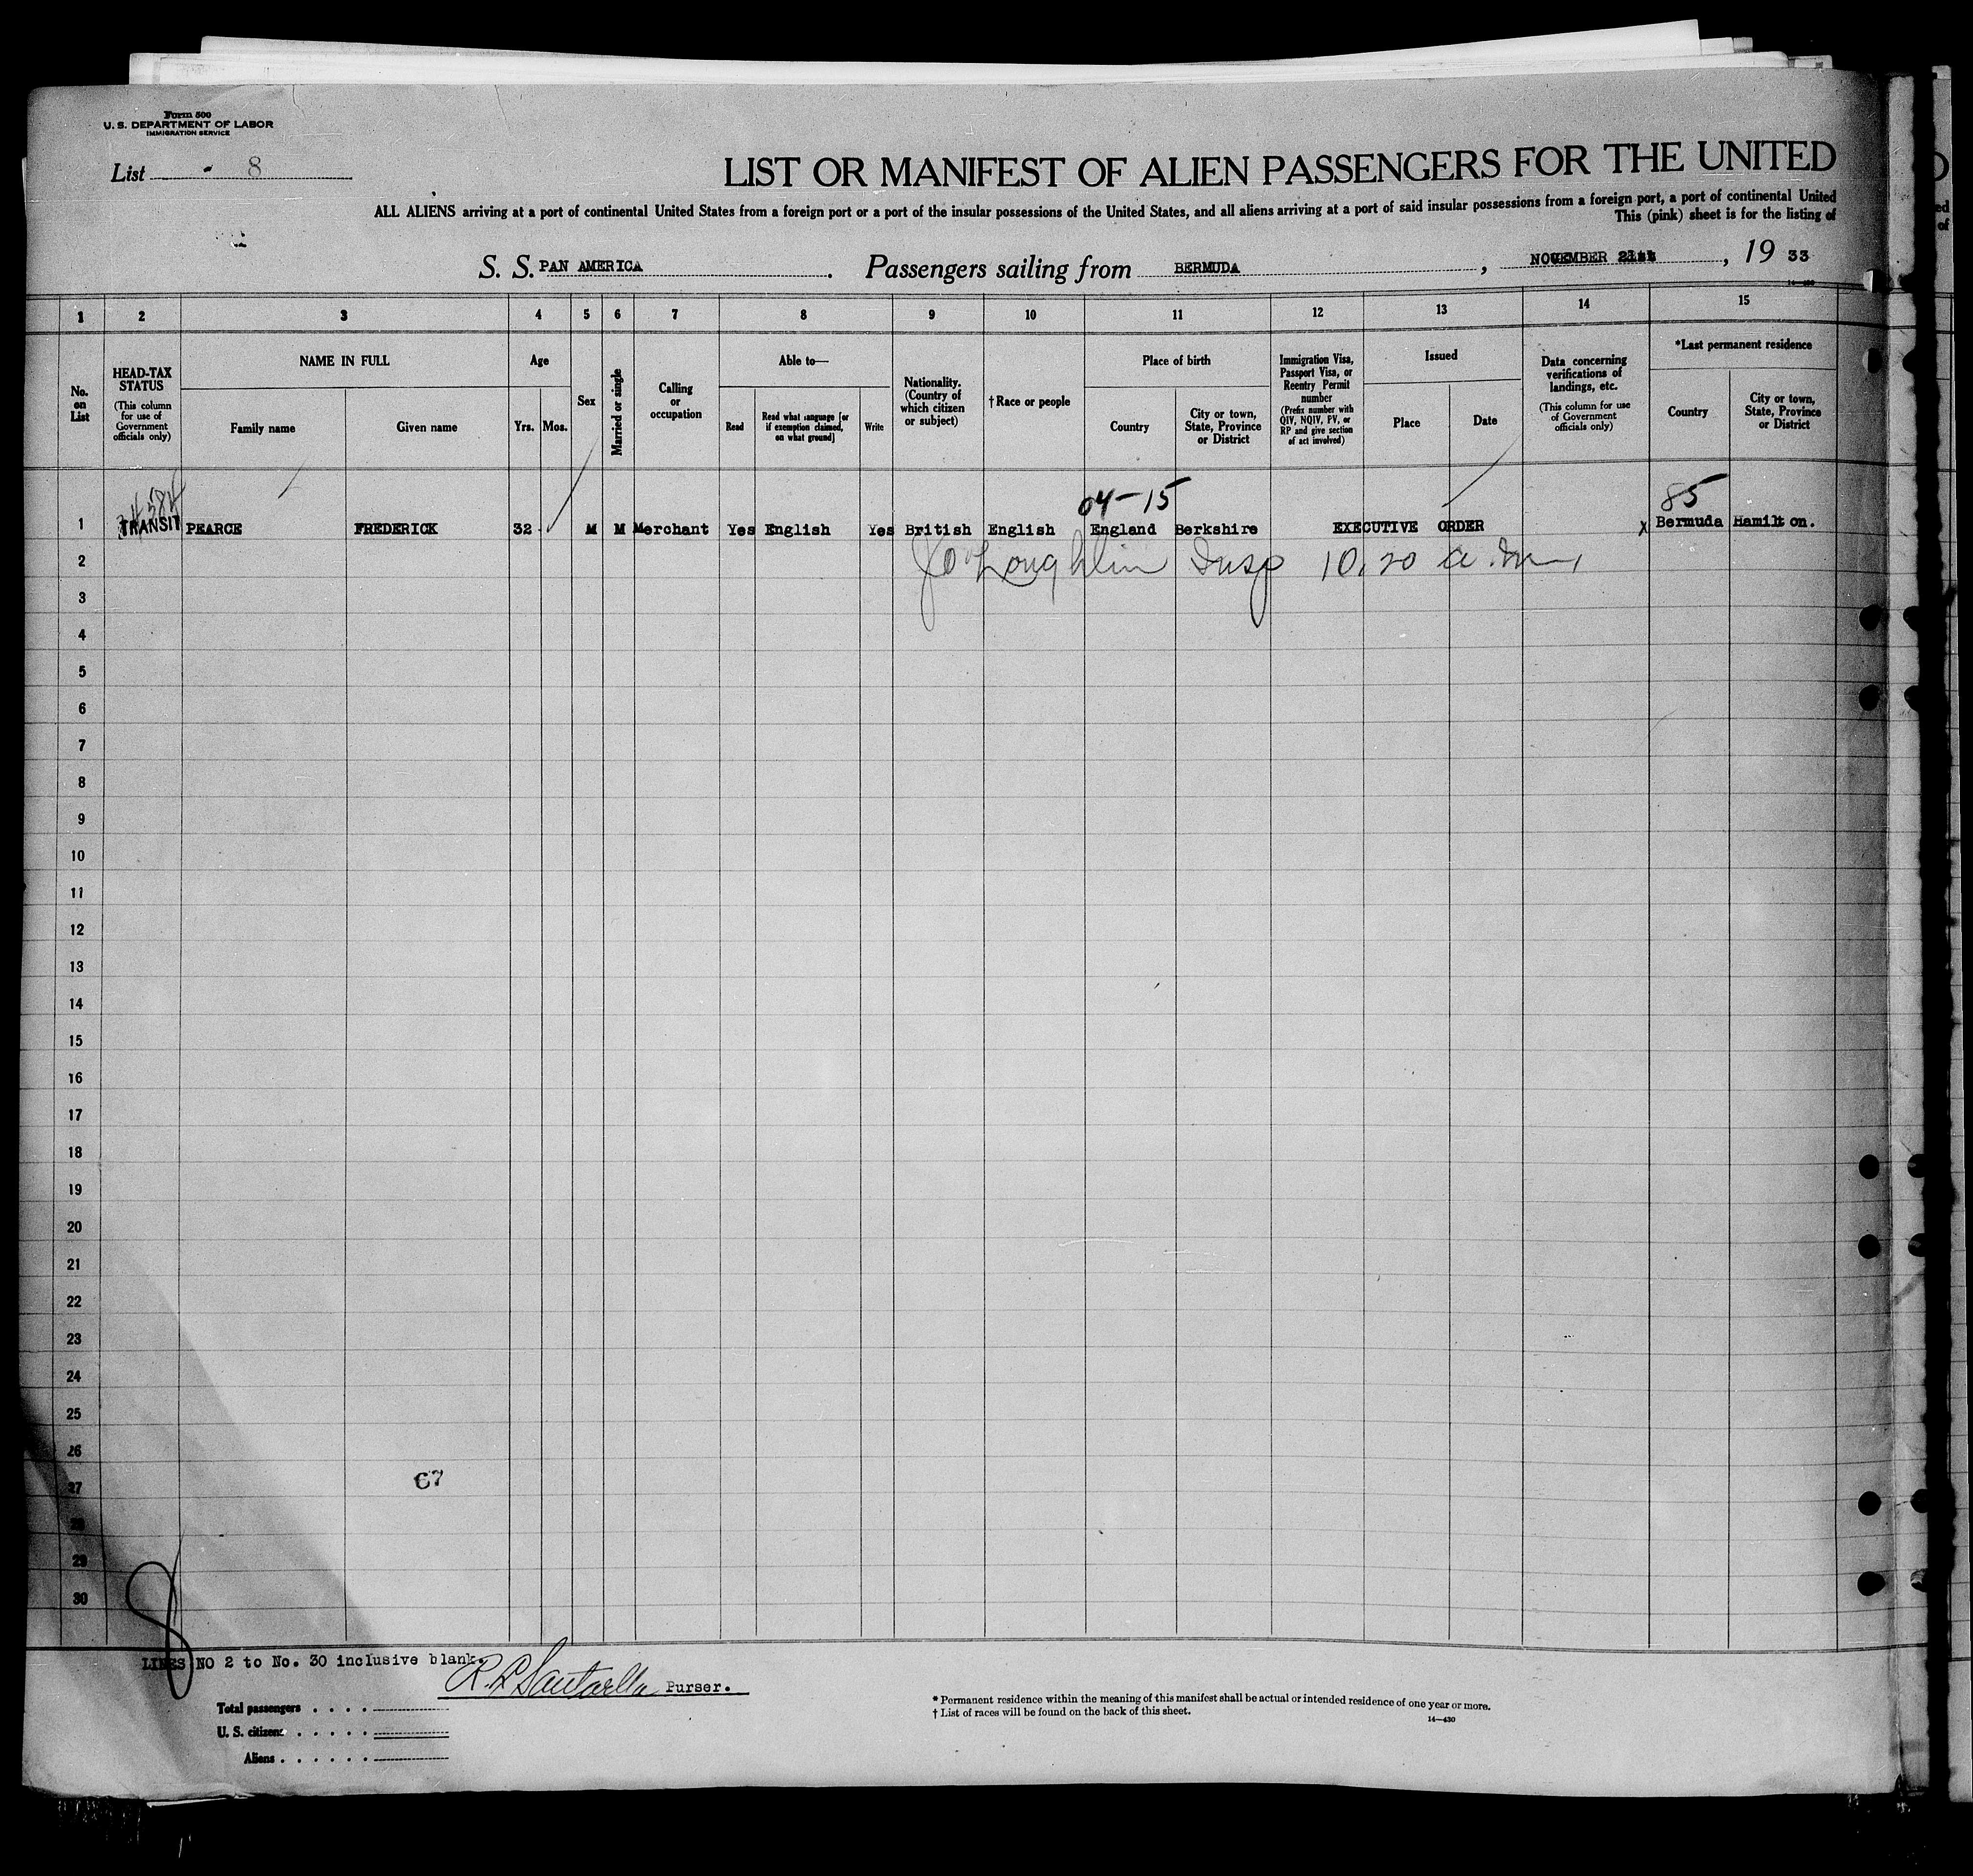 Form 500
U. S. DEPARTMENT OF LABOR
IMMIGRATION SERVICE
List 8
LIST OR MANIFEST OF ALIEN PASSENGERS FOR THE UNITED
ALL ALIENS arriving at a port of continental United States from a foreign port or a port of the insular possessions of the United States, and all aliens arriving at a port of said insular possessions from a foreign port, a port of continental United
This (pink) sheet is for the listing of
S. S. PAN AMERICA. Passengers sailing from BERMUDA, NOVEMBER , 19 33
1 2 3 4 5 6 7 8 9 10 11 12 13 14 15
No. on List
HEAD-TAX STATUS
(This column for use of Government officials only)
NAME IN FULL
Family name
Given name
Age
Yrs.
Mos.
Sex
Married or single
Calling or occupation
Able to—
Read
Read what language [or if exemption claimed, on what ground]
Write
Nationality. (Country of which citizen or subject)
† Race or people
Place of birth
Country
City or town, State, Province or District
Immigration Visa, Passport Visa, or Reentry Permit number
(Prefix number with QIV, NQIV, PV, or RP and give section of act involved)
Issued
Place
Date
Data concerning verifications of landings, etc.
(This column for use of Government officials only)
*Last permanent residence
Country
City or town, State, Province or District
04-15
85
1 TRANSIT PEARCE FREDERICK 32 M M Merchant Yes English Yes British English England Berkshire EXECUTIVE ORDER X Bermuda Hamilton.
2 J O'Loughlin Insp 10.20 a.m.
3
4
5
6
7
8
9
10
11
12
13
14
15
16
17
18
19
20
21
22
23
24
25
26
27 67
28
29
30
8
LINES NO 2 to No. 30 inclusive blank.
Purser.
Total passengers . . . .
U. S. citizens . . . . .
Aliens . . . . . .
* Permanent residence within the meaning of this manifest shall be actual or intended residence of one year or more.
† List of races will be found on the back of this sheet.
14—430